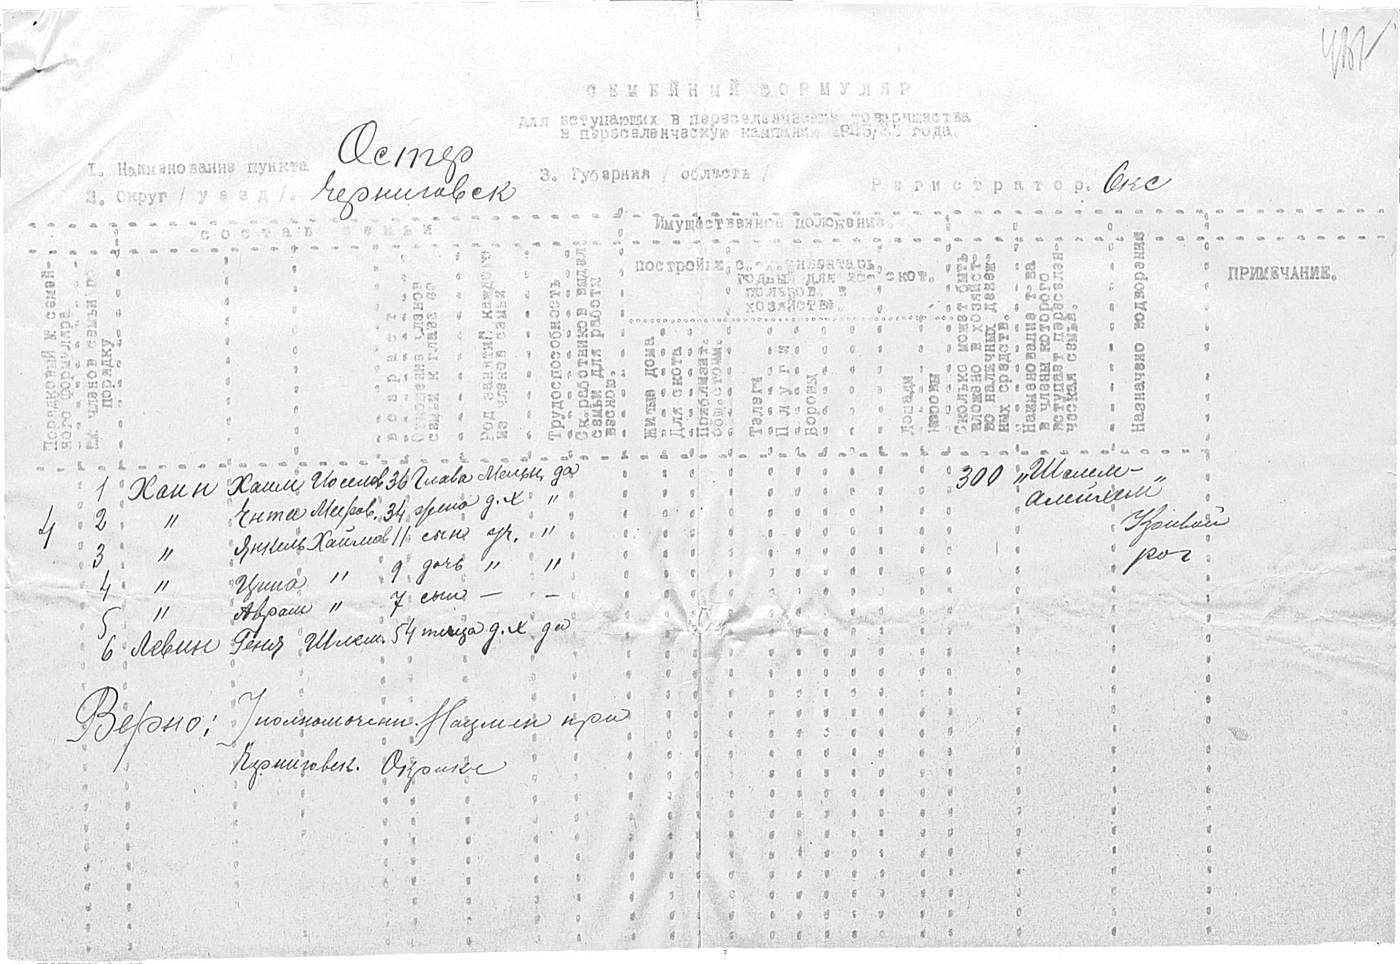 СЕМЕЙНЫЙ ФОРМУЛЯР
для вступающих в переселенческие товарищества
в переселенческую кампанию года.
1. Наименование пункта Остер
2. Округ /уезд/. Черниговск
3. Губерния /область/
Регистратор. Окс
СОСТАВ СЕМЬИ
Имущественное положение.
Порядковый № семейного формуляра
№№ членов семьи по порядку
возраст
Отношение членов семьи к главе ее
Род занятий каждого из членов семьи
Трудоспособность
Ск. работников выдел. семьи для работы весною.
постройки,
с.-х. инвентарь, годный для в хозяйстве.
скот.
Жилые дома
Для скота
Приблизит. общ. стоим.
Телеги
Плуги
Бороны
Лошади
Коровы
Сколько может быть вложено в хозяйство наличных денежных средств.
Наименование т-ва в члены которого вступает переселенческая семья.
Назначено водворение
ПРИМЕЧАНИЕ.
4
1 Хаин Хаим Иоселов 36 Глава Мельн. да 300 „Шолем-
Алейхем“
2 " Ента Мееров. 34 жена д.х "
Кривой
рог
3 " Янкель Хаимов 11 сын уч. "
4 " Ципа " 9 дочь " "
5 " Аврам " 7 сын — —
6 Левин Геня Шлем. 54 теща д.х да
Верно: Уполномочен. Нацмен при
Черниговск. Окрике